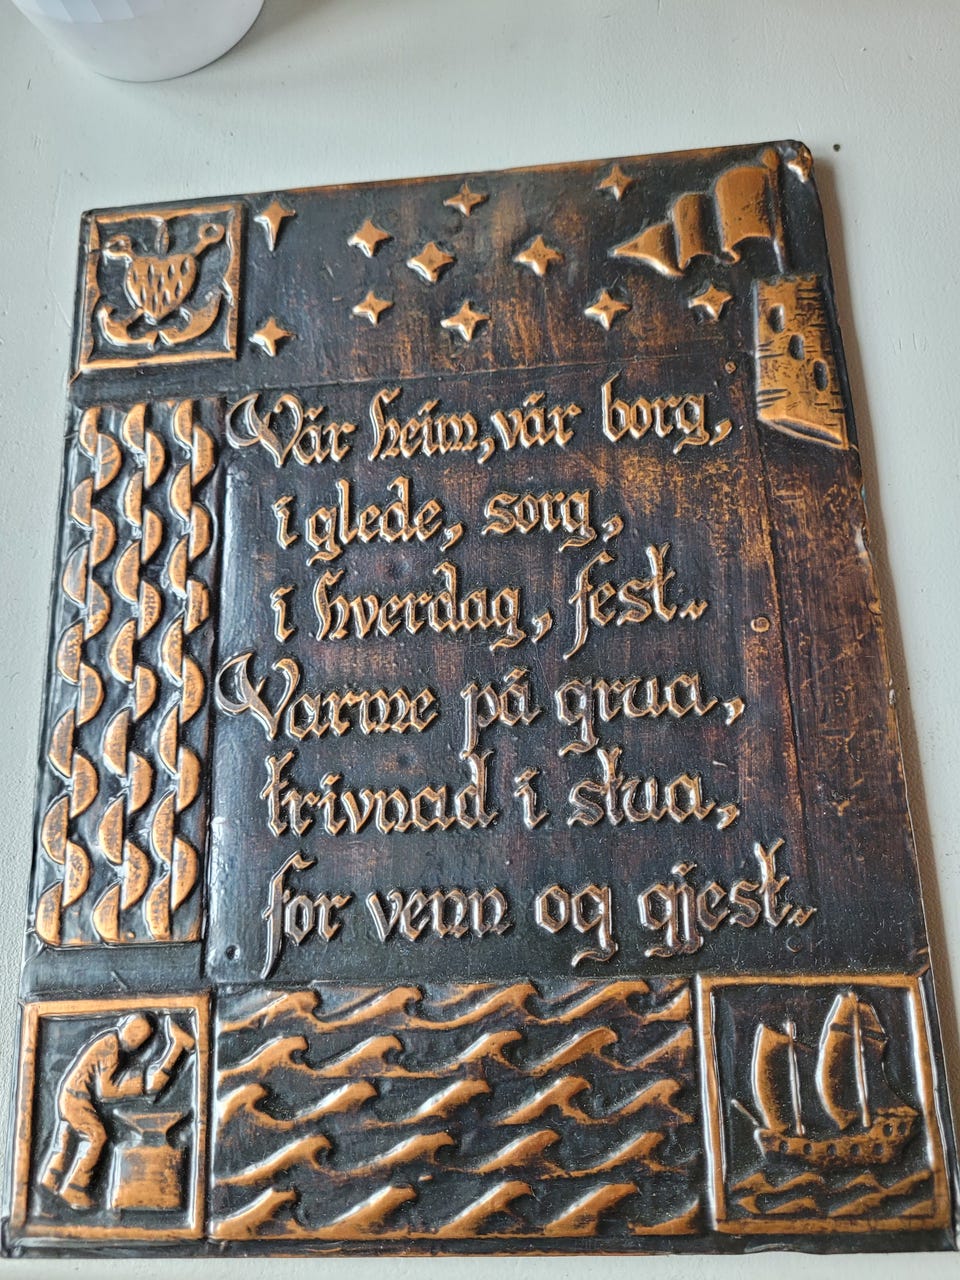 Vår heim, vår borg,
i glede, sorg,
i hverdag, fest..
Varme på grua,
trivnad i stua,
for venn og gjest..